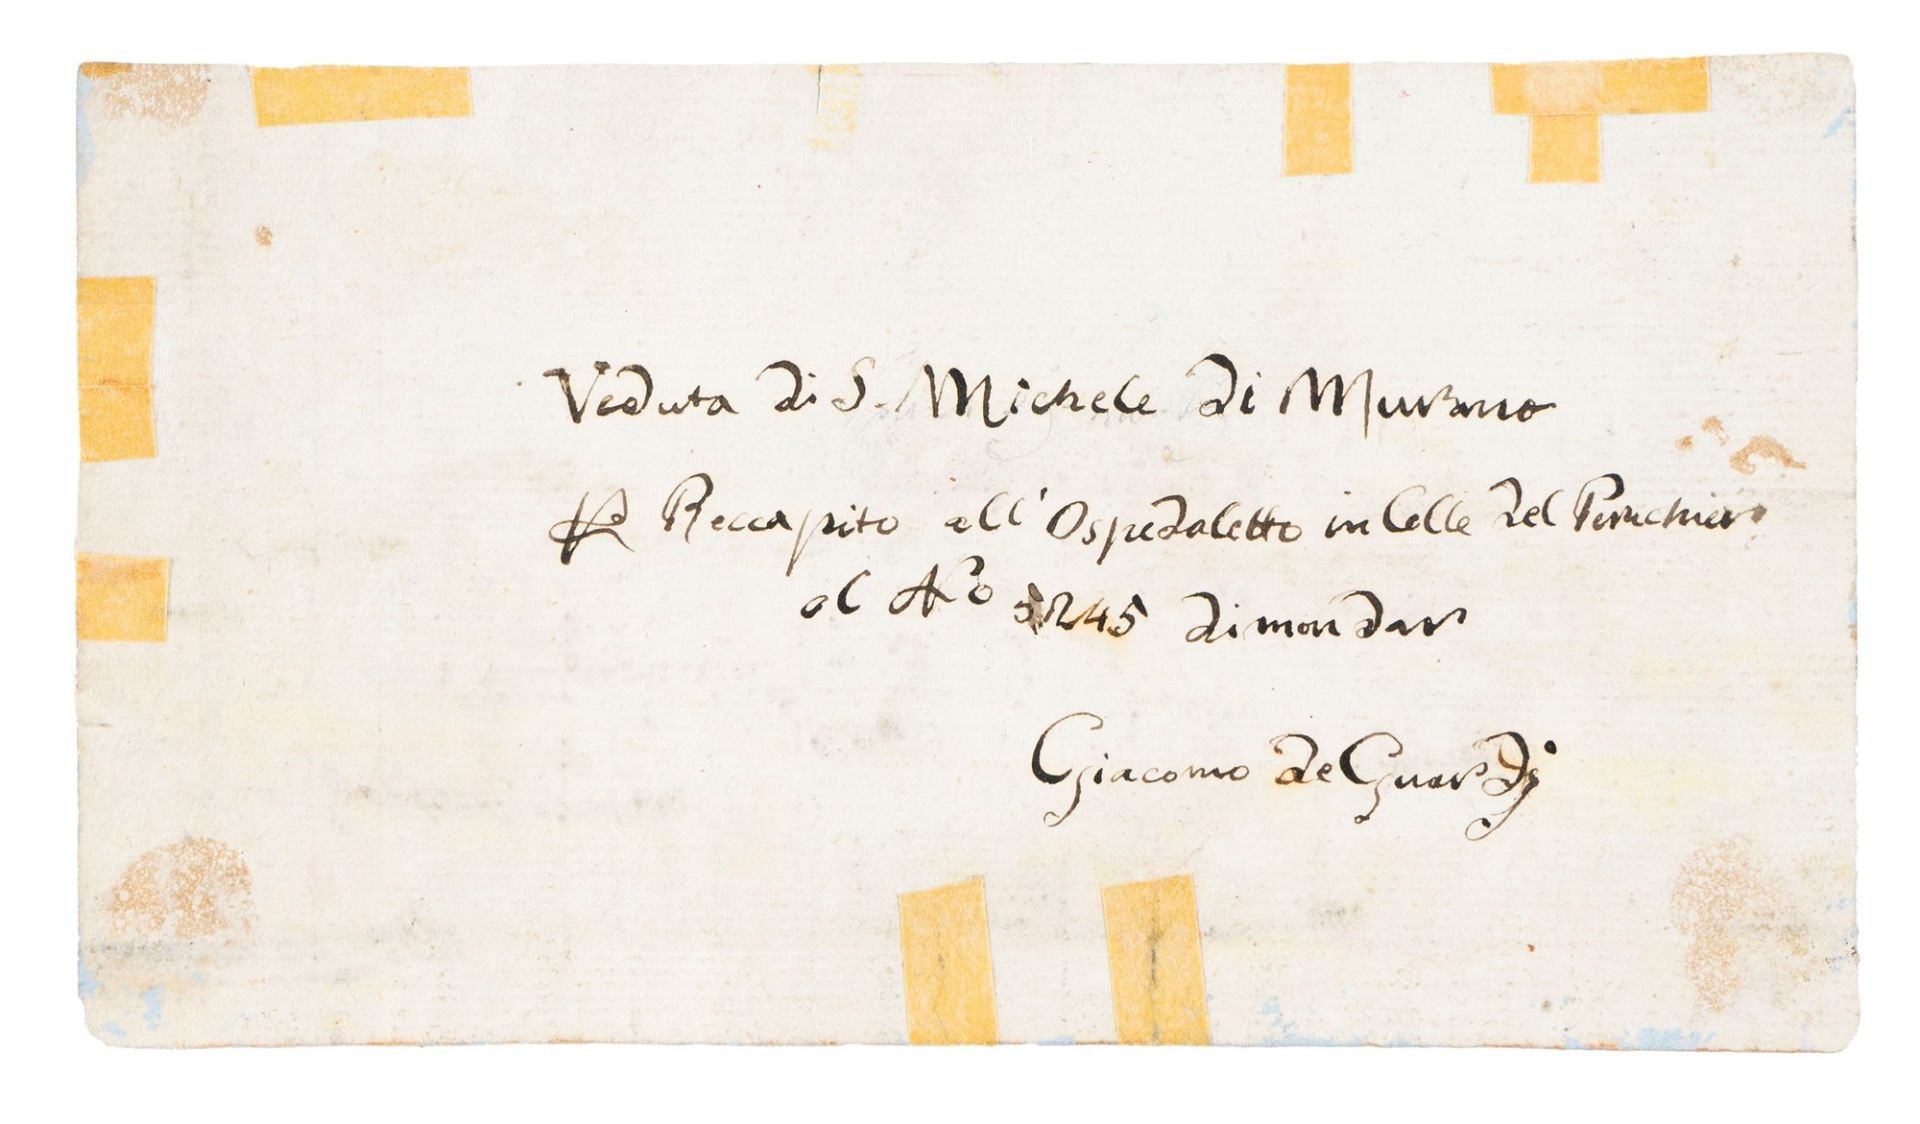 Veduta di S. Michele di Murano
Reccapito all' Ospedaletto in Calle del Peruchier
al No 5245 dimandar
Giacomo de Guardi